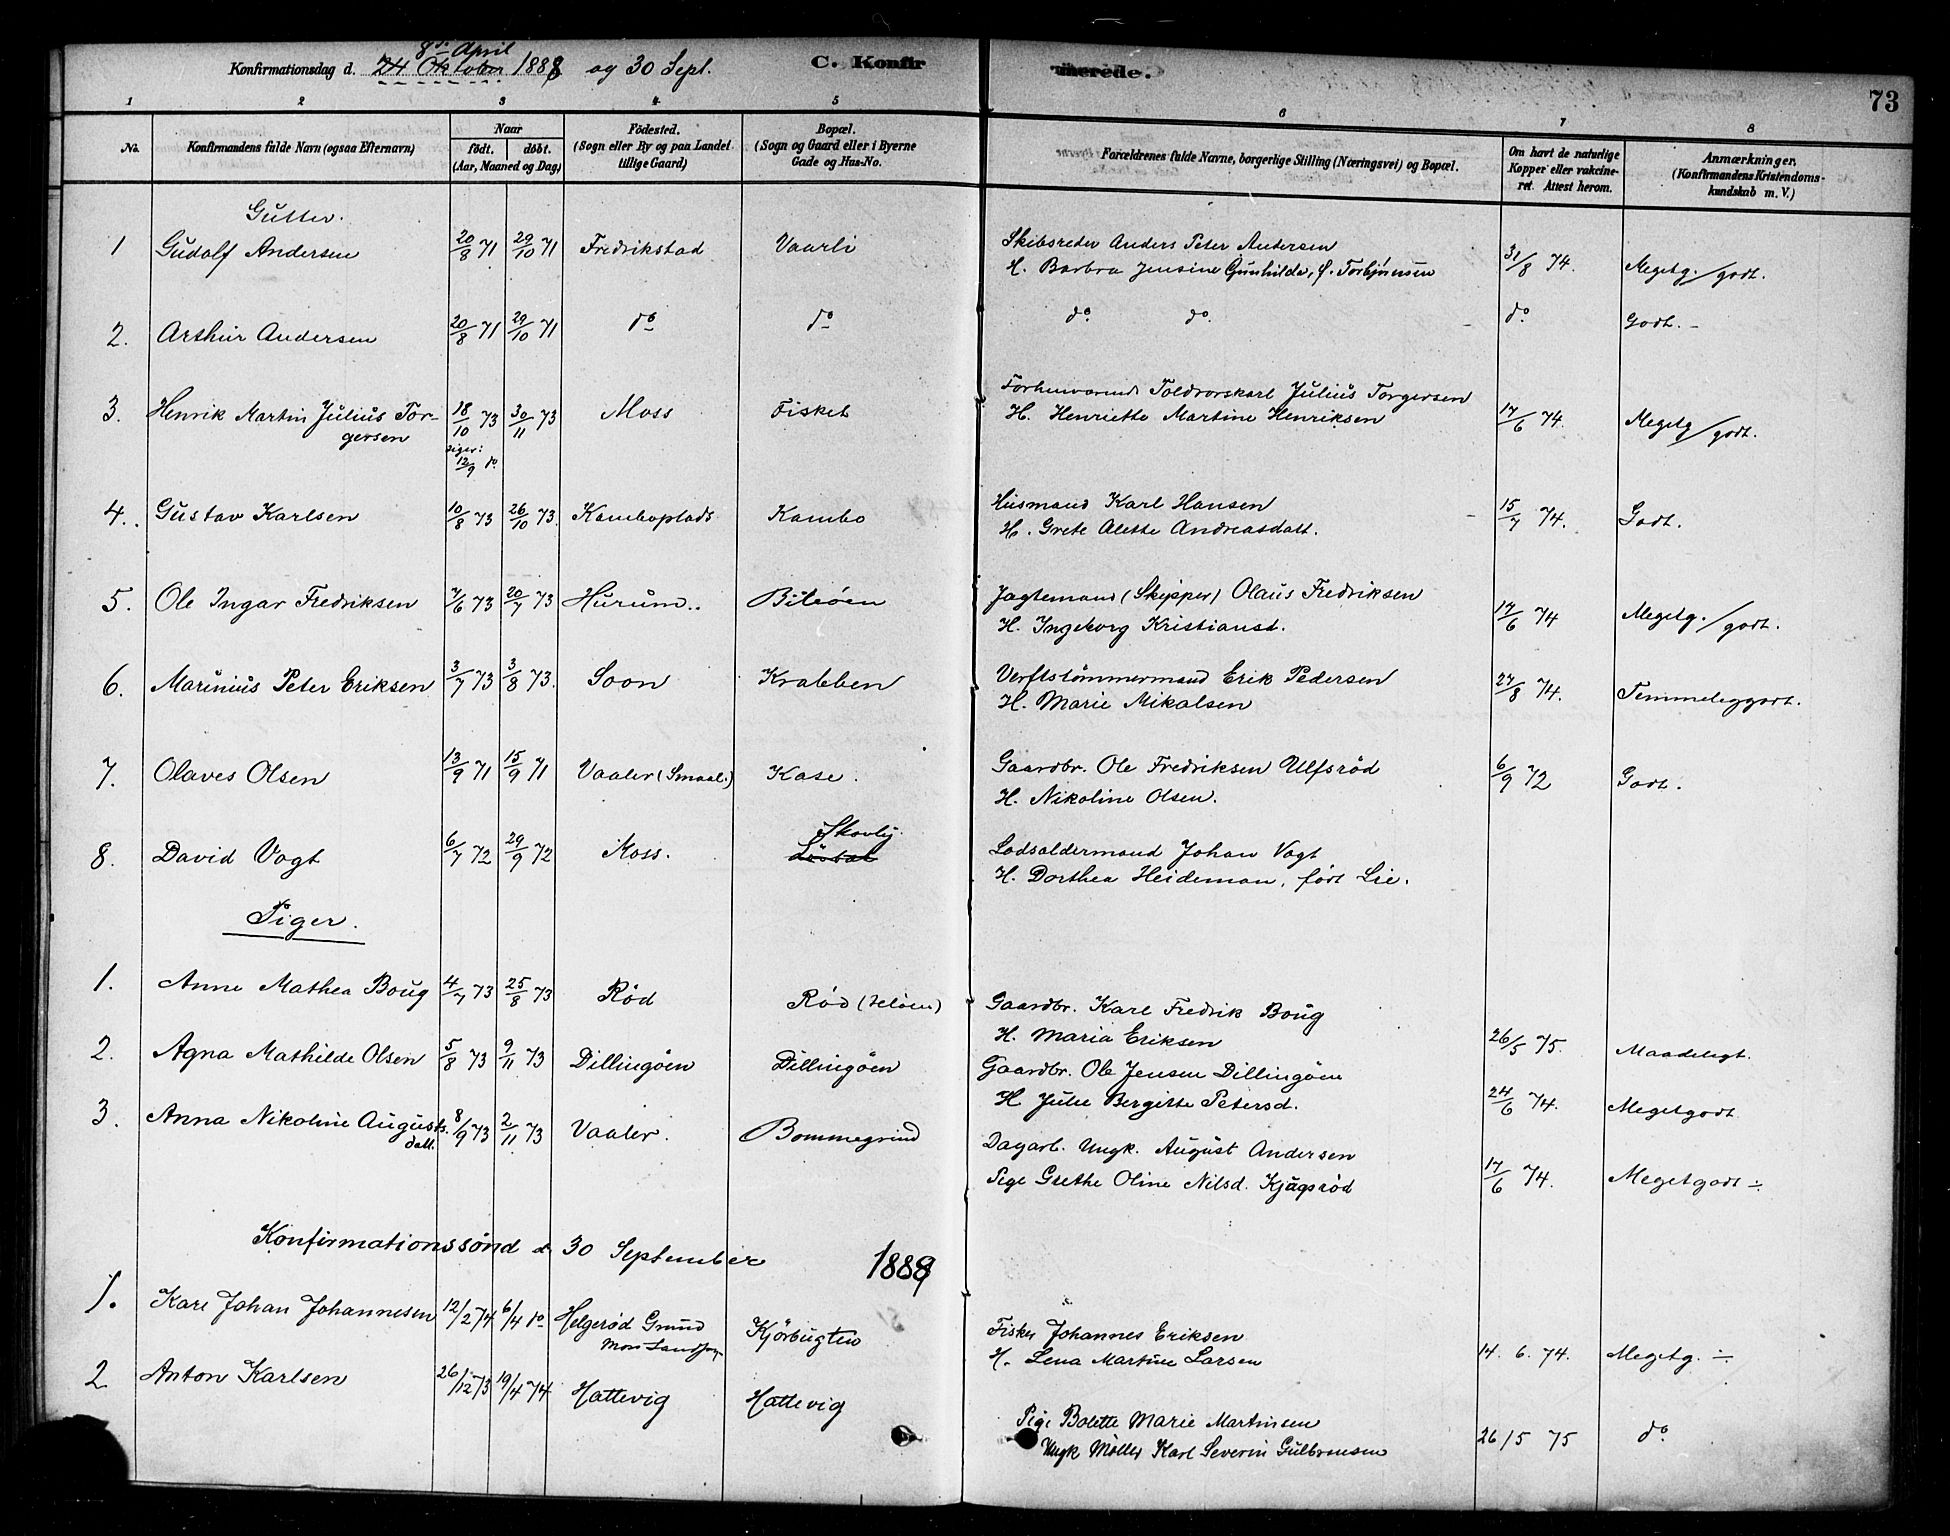 8de April
Konfirmationsdag d. 24 Oktober 1888 og 30 Sept. C. Konfirmerede. 73
1 2 3 4 5 6 7 8
No. Konfirmandens fulde Navn (ogsaa Efternavn) Naar födt. döbt. (Aar, Maaned og Dag) Födested. (Sogn eller By og paa Landet tillige Gaard) Bopæl. (Sogn og Gaard eller i Byerne Gade og Hus-No. Forældrenes fulde Navne, borgerlige Stilling (Næringsvei) og Bopæl. Om havt de naturlige Kopper eller vakcineret. Attest herom. Anmærkninger. (Konfirmandens Kristendomskundskab m. V.)
Gutter.
1 Gudolf Andersen 20/8 71 29/10 71 Fredrikstad Vaarli Skibsreder Anders Peter Andersen 31/8 74. Megetg./godt.
H. Barbra Jensine Gunhilde, f. Torbjörnsen
2. Arthur Andersen 20/8 71 29/10 71 do do do. do. do Godt.
3. Henrik Martin Julius Torgersen 18/10 73 30/11 73 Moss Fisket Forhenværende Toldrorskarl Julius Torgersen 17/6 74. Megetg/godt.
siger: 12/9 do. H. Henriette Martine Henriksen
4. Gustav Karlsen 10/8 73 26/10 73. Kamboplads Kambo Husmand Karl Hansen 15/7 74. Godt.
H. Grete Alette Andreasdatt.
5. Ole Ingar Fredriksen 7/6 73 20/7 73 Hurum.. Bileöen Jagtemand (Skipper) Olaus Fredriksen 17/6 74 Megetg./godt.
H. Ingeborg Kristiansd.
6. Marinius Peter Eriksen 3/7 73 3/8 73. Soon Krabben Verftstömmermand Erik Pedersen 27/8 74. Temmeliggodt.
H. Marie Mikalsen
7. Olaves Olsen 13/9 71 15/9 71 Vaaler (Smaal.) Kase. Gaardbr. Ole Fredriksen Ulfsröd 6/9 72 Godt.
H. Nikoline Olsen.
Skovly.
8. David Vogt 6/7 72 29/9 72 Moss. Lodsoldermand Johan Vogt
H. Dorthea Heideman, født Lie.
Piger.
1. Anne Mathea Boug 4/7 73 25/8 73 Rød Rød (Jeløen) Gaardbr. Karl Fredrik Boug
H. Maria Eriksen 26/5 75. Maadeligt.
2. Agna Mathilde Olsen 5/8 73 9/11 73 Dillingöen Dillingöen Gaardbr. Ole Jensen Dillingöen
H Julie Bergitte Petersd. 24/6 74. Megetgodt
3. Anna Nikoline Augustsdatt. 8/9 73 2/11 73 Vaaler. Bommegrind Dagarb. Ungk. August Andersen
Pige Grethe Oline Nilsd. Kjøgsröd 17/6 74. Megetgodt ÷
Konfirmationssönd d. 30 September 1888
1. Karl Johan Johannesen 12/2 74 6/4 do Helgeröd Grund Kjörbugten Fisker Johannes Eriksen
H. Lena Martine Larsen 14. 6. 74. Megetg. ÷
2 Anton Karlsen 26/12 73 19/4 74 Hattevig Hattevig Pige Bolette Marie Martinsen
Ungk Møller Karl Severin Gulbransen 26/5 75 do